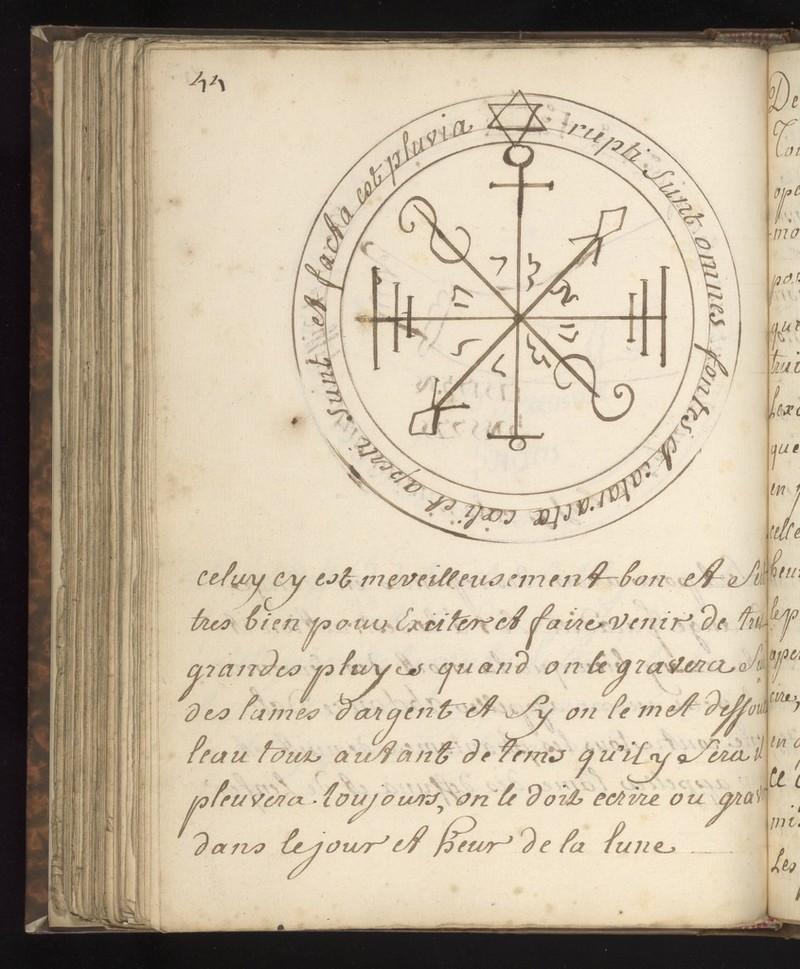 44
rupti sunt omnes fontes et cataracta cœli et aperti sunt et facta est pluvia
celuy cy est merveilleusement bon et
tres bien pour Exciter et faire venir de
grandes pluyes quand on le gravera
des lames dargent et Sy on le met dessou
leau tout autant de tems qu'il y Sera il
pleuvera toujours, on le doit ecrire ou grav
dans le jour et heur de la lune